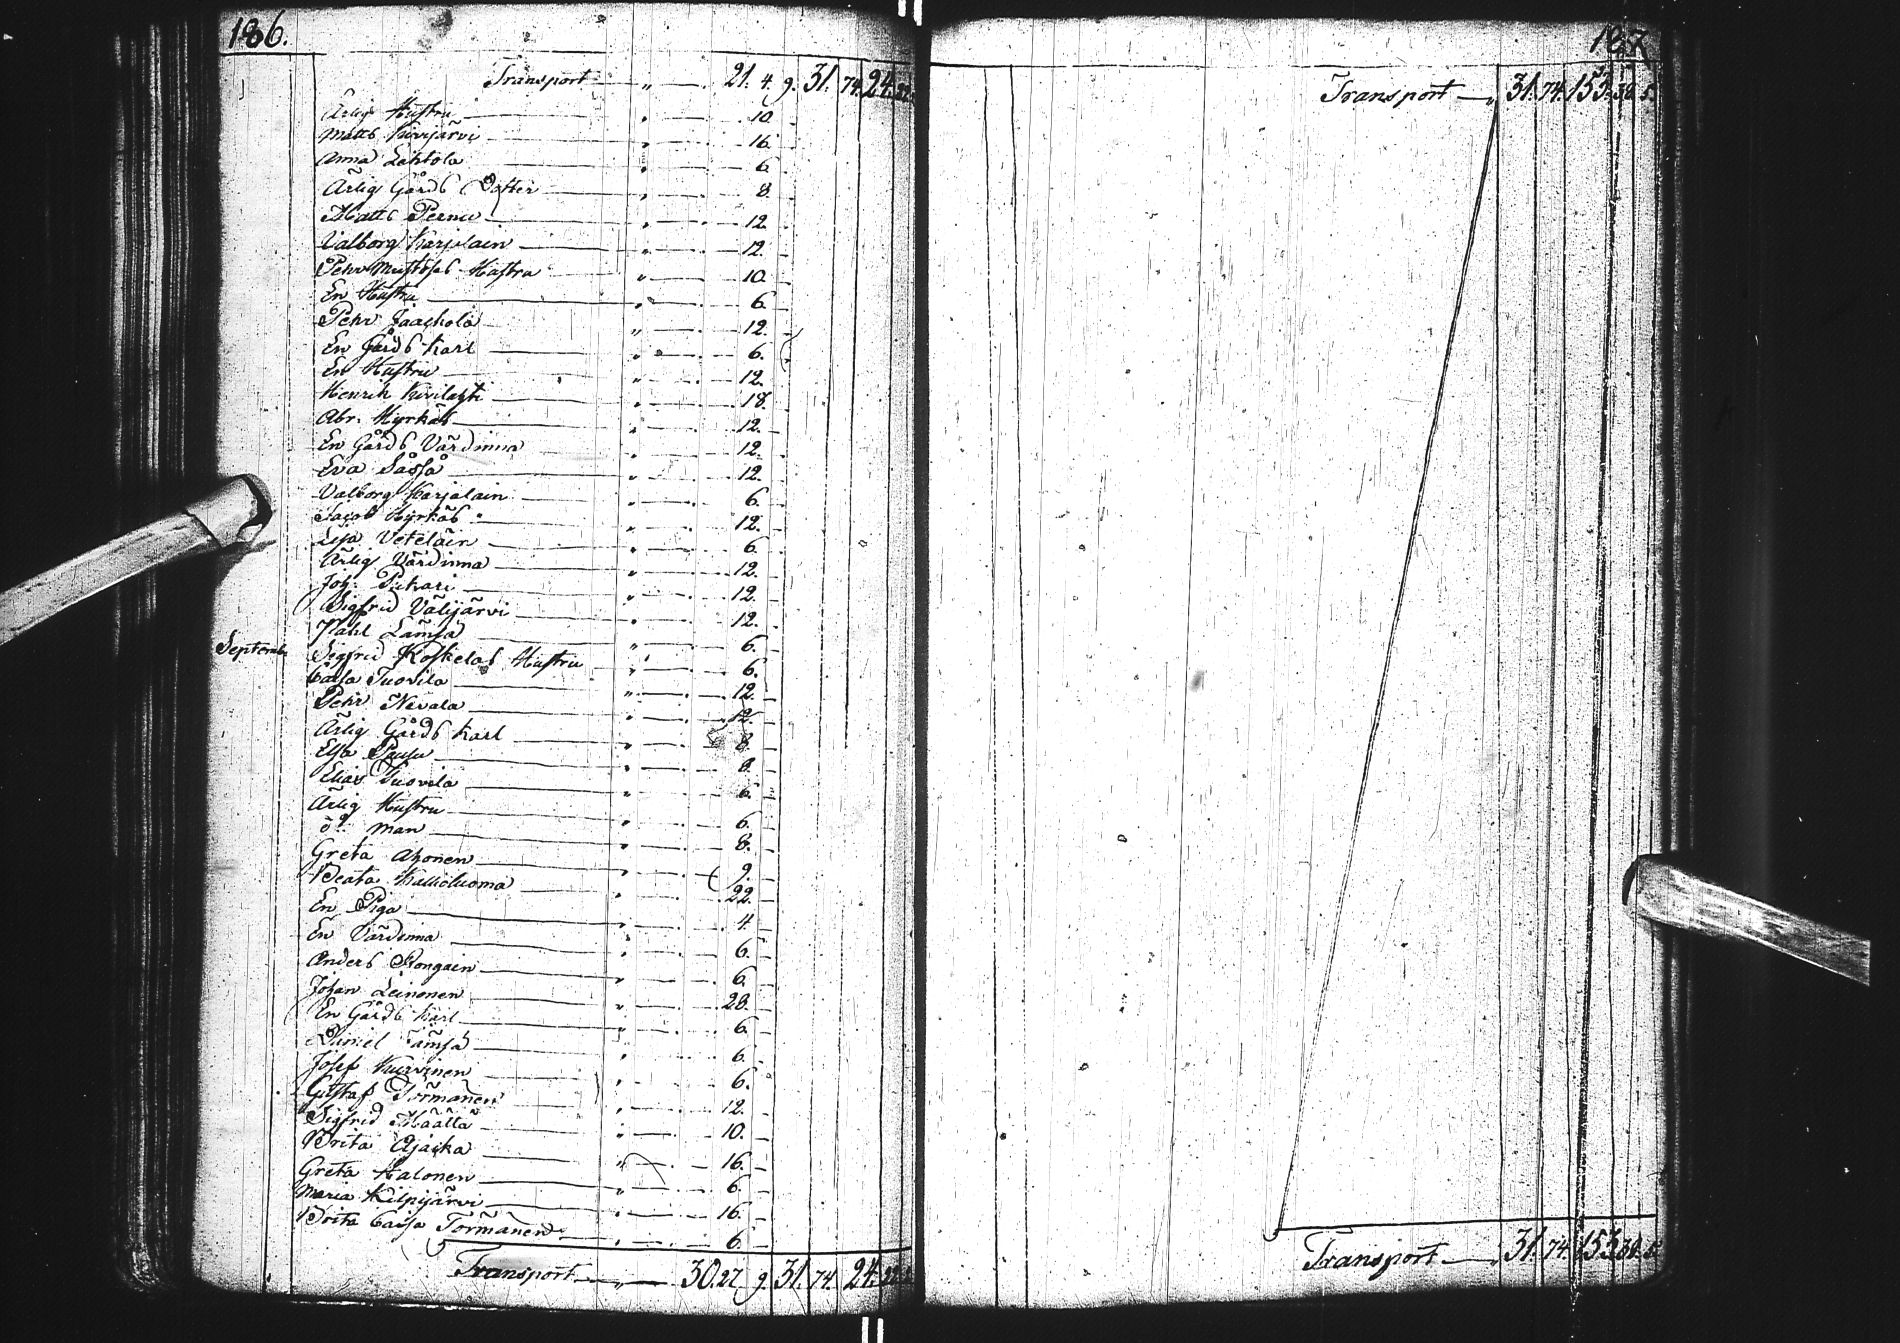 186.
Transport — „ — 21. 4. 9. 31. 74. 24. 22.
Ärlig Hustru „ 10.
Matts Kivijärvi „ 16.
Anna Lehtola „ 6.
Ärlig Gårds Dotter „ 8.
Matts Pernu „ 12.
Valborg Karjalain „ 12.
Pehr Mustosas Hustru „ 10.
En Hustru „ 6.
Pehr Jaachola „ 12.
En Gårds Karl „ 6.
En Hustru „ 12.
Henrik Kivilahti „ 18.
Abr. Hyrkäs „ 12.
En Gårds Värdinna „ 12.
Eva Såsså „ 12.
Valborg Karjalain „ 6.
Jacob Hyrkäs „ 12.
Lisa Veteläin „ 6.
Ärlig Värdinna „ 12.
Joh: Pukari „ 12.
Sigfrid Välijärvi „ 12.
Påhl Lämsä „ 6.
Septemb. Sigfrid Koskelas Hustru „ 6.
Caisa Tuovila „ 12.
Pehr Nevala „ 12.
Ärlig Gårds Karl „ 8.
Elsa Pausu „ 8.
Elias Tuovila „ 6.
Ärlig Hustru „ 6.
d:o man „ 8.
Greta Ahonen „ 9.
Beata Kallioluoma „ 22.
En Piga „ 4.
En Värdinna „ 6.
Anders Rongain „ 6.
Johan Leinonen „ 28.
En Gårds Karl „ 6.
Daniel Lämsä „ 6.
Josef Kurvinen „ 6.
Gustaf Törmänen „ 12.
Sigfrid Määttä „ 10.
Brita Ajacka „ 16.
Greta Halonen „ 6.
Maria Kilpijärvi „ 16.
Brita Caisa Törmänen „ 6.
Transport — „ — 30. 27. 9. 31. 74. 24. 22.
187
Transport — „ 31. 74. 153. 38. 5.
Transport — „ 31. 74. 153. 38. 5.